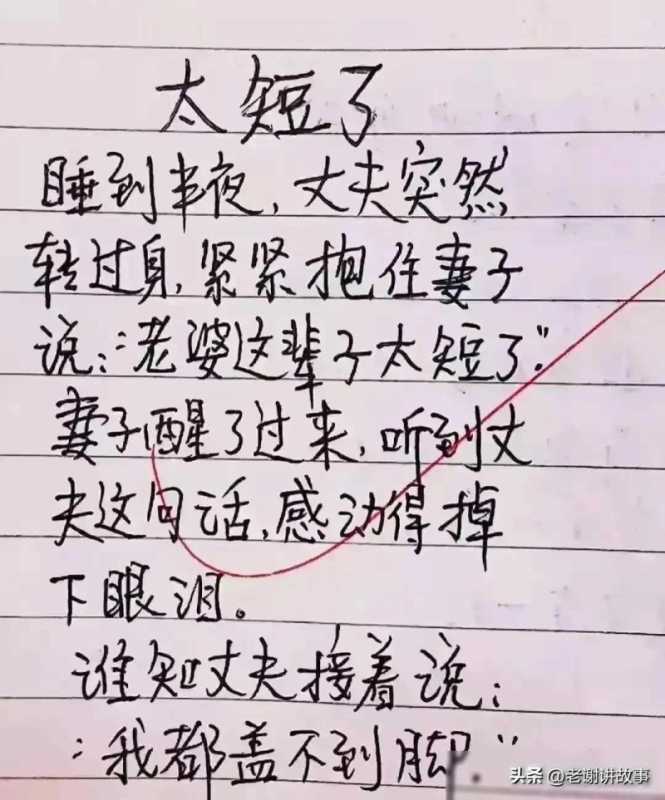 太短了
睡到半夜，丈夫突然
转过身，紧紧抱住妻子
说：“老婆这辈子太短了”
妻子醒了过来，听到丈
夫这句话，感动得掉
下眼泪。
谁知丈夫接着说：
“我都盖不到脚”
头条 @老谢讲故事